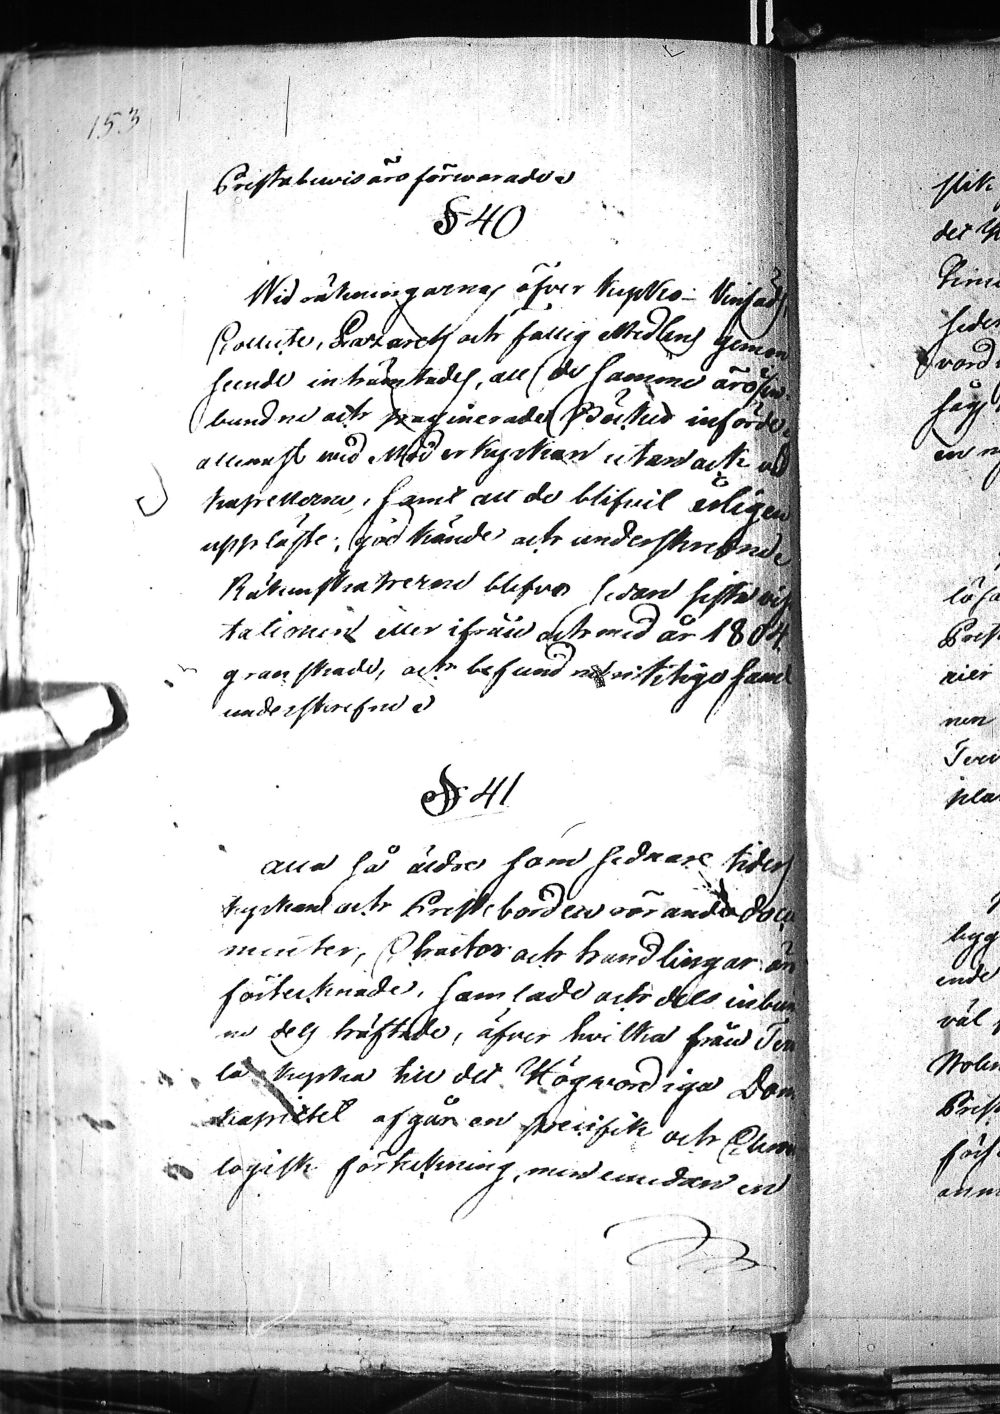 153
Prestabewis äro förwarade
§ 40
Wid räkningarnas öfver kyrko- Vinsäds,
Collecte, Lazarets och fattig Medlens genom
seende inhämtades, att de samme äro in-
bundne och paginerade Böcker införde
allenast wid Moderkyrkan utan ock wid
kapellerne, samt att de blifvit årligen
uppläste, godkände och underskrefne
Räkenskaperne blefvo sedan sista vis
tationen eller ifrån och med år 1804
granskade, och befundne riktige samt
underskrefne
§ 41
Alla så äldre som sednare tiders
kyrkan och Presteborden rörande docu
menter, Chartor och handlingar är
förtecknade, samlade och dels inbun
ne dels häftade, öfver hvilka från Ten
la kyrka till det Högwördiga Dom
kapittel afgår en specifik och Chro
logisk förteckning, men emedan en
slik
det
sedes
word
en
löfa
Prest
nen
pla
byg
ende
väl
Prest
förs